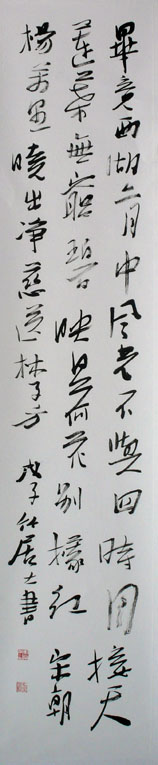 畢竟西湖六月中風光不與四時同接天
蓮葉無窮碧映日荷花別樣紅宋朝
楊萬里曉出净慈送林子方 戊子 居士書